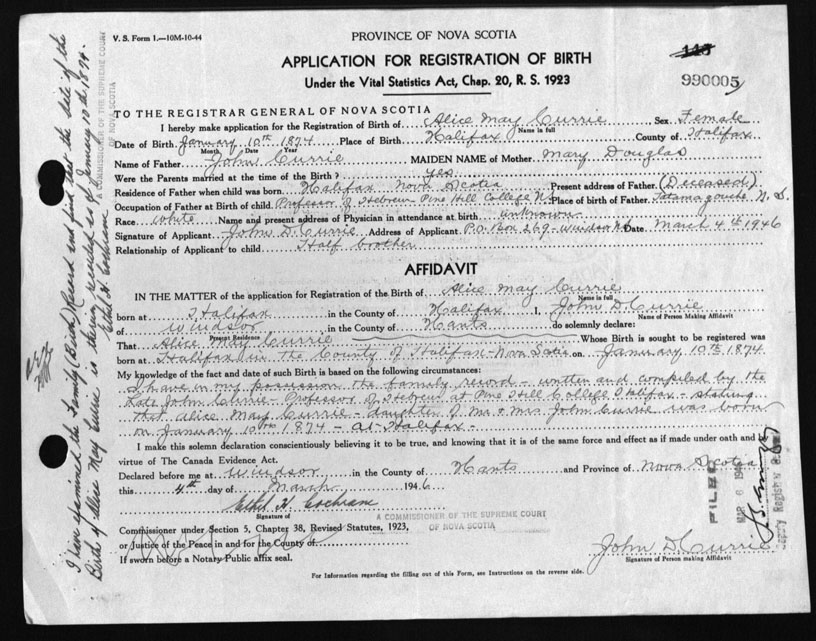 V. S. Form 1.—10M-10-44
PROVINCE OF NOVA SCOTIA
APPLICATION FOR REGISTRATION OF BIRTH
Under the Vital Statistics Act, Chap. 20, R. S. 1923
990005
TO THE REGISTRAR GENERAL OF NOVA SCOTIA
I hereby make application for the Registration of Birth of Alice May Currie Sex Female
Name in full
Date of Birth January 10th 1874 Place of Birth Halifax County of Halifax
Month Date Year
Name of Father John Currie MAIDEN NAME of Mother Mary Douglas
Were the Parents married at the time of the Birth? Yes
Residence of Father when child was born Halifax Nova Scotia Present address of Father (Deceased)
Occupation of Father at Birth of child Professor of Hebrew Pine Hill College N.S. Place of birth of Father Tatamagouche N.S.
Race White Name and present address of Physician in attendance at birth unknown
Signature of Applicant John D. Currie Address of Applicant P.O. Box 269 - Windsor N.S. Date March 4th 1946
Relationship of Applicant to child Half brother
AFFIDAVIT
IN THE MATTER of the application for Registration of the Birth of Alice May Currie
Name in full
born at Halifax in the County of Halifax I, John D Currie
Name of Person Making Affidavit
of Windsor in the County of Hants do solemnly declare:
Present Residence
That Alice May Currie Whose Birth is sought to be registered was
born at Halifax in the County of Halifax - Nova Scotia on January 10th 1874
My knowledge of the fact and date of such Birth is based on the following circumstances:
I have in my possession the family record - written and compiled by the
late John Currie - Professor of Hebrew at Pine Hill College Halifax - stating
that Alice May Currie - daughter of Mr & Mrs John Currie was born
on January 10th 1874 - at Halifax -
I make this solemn declaration conscientiously believing it to be true, and knowing that it is of the same force and effect as if made under oath and by
virtue of The Canada Evidence Act.
Declared before me at Windsor in the County of Hants and Province of Nova Scotia
this 4th day of March 1946
Ethel H Cochrane
Signature of
A COMMISSIONER OF THE SUPREME COURT
OF NOVA SCOTIA
Commissioner under Section 5, Chapter 38, Revised Statutes, 1923,
or Justice of the Peace in and for the County of
If sworn before a Notary Public affix seal.
John D Currie
Signature of Person making Affidavit
For Information regarding the filling out of this Form, see Instructions on the reverse side.
I have examined the Family (Birth) Record and find that the date of the
Birth of Alice May Currie is therein recorded as of January 10th 1874.
Ethel H Cochrane
A COMMISSIONER OF THE SUPREME COURT
OF NOVA SCOTIA
FILED
MAR 6 1946
Deputy Registrar